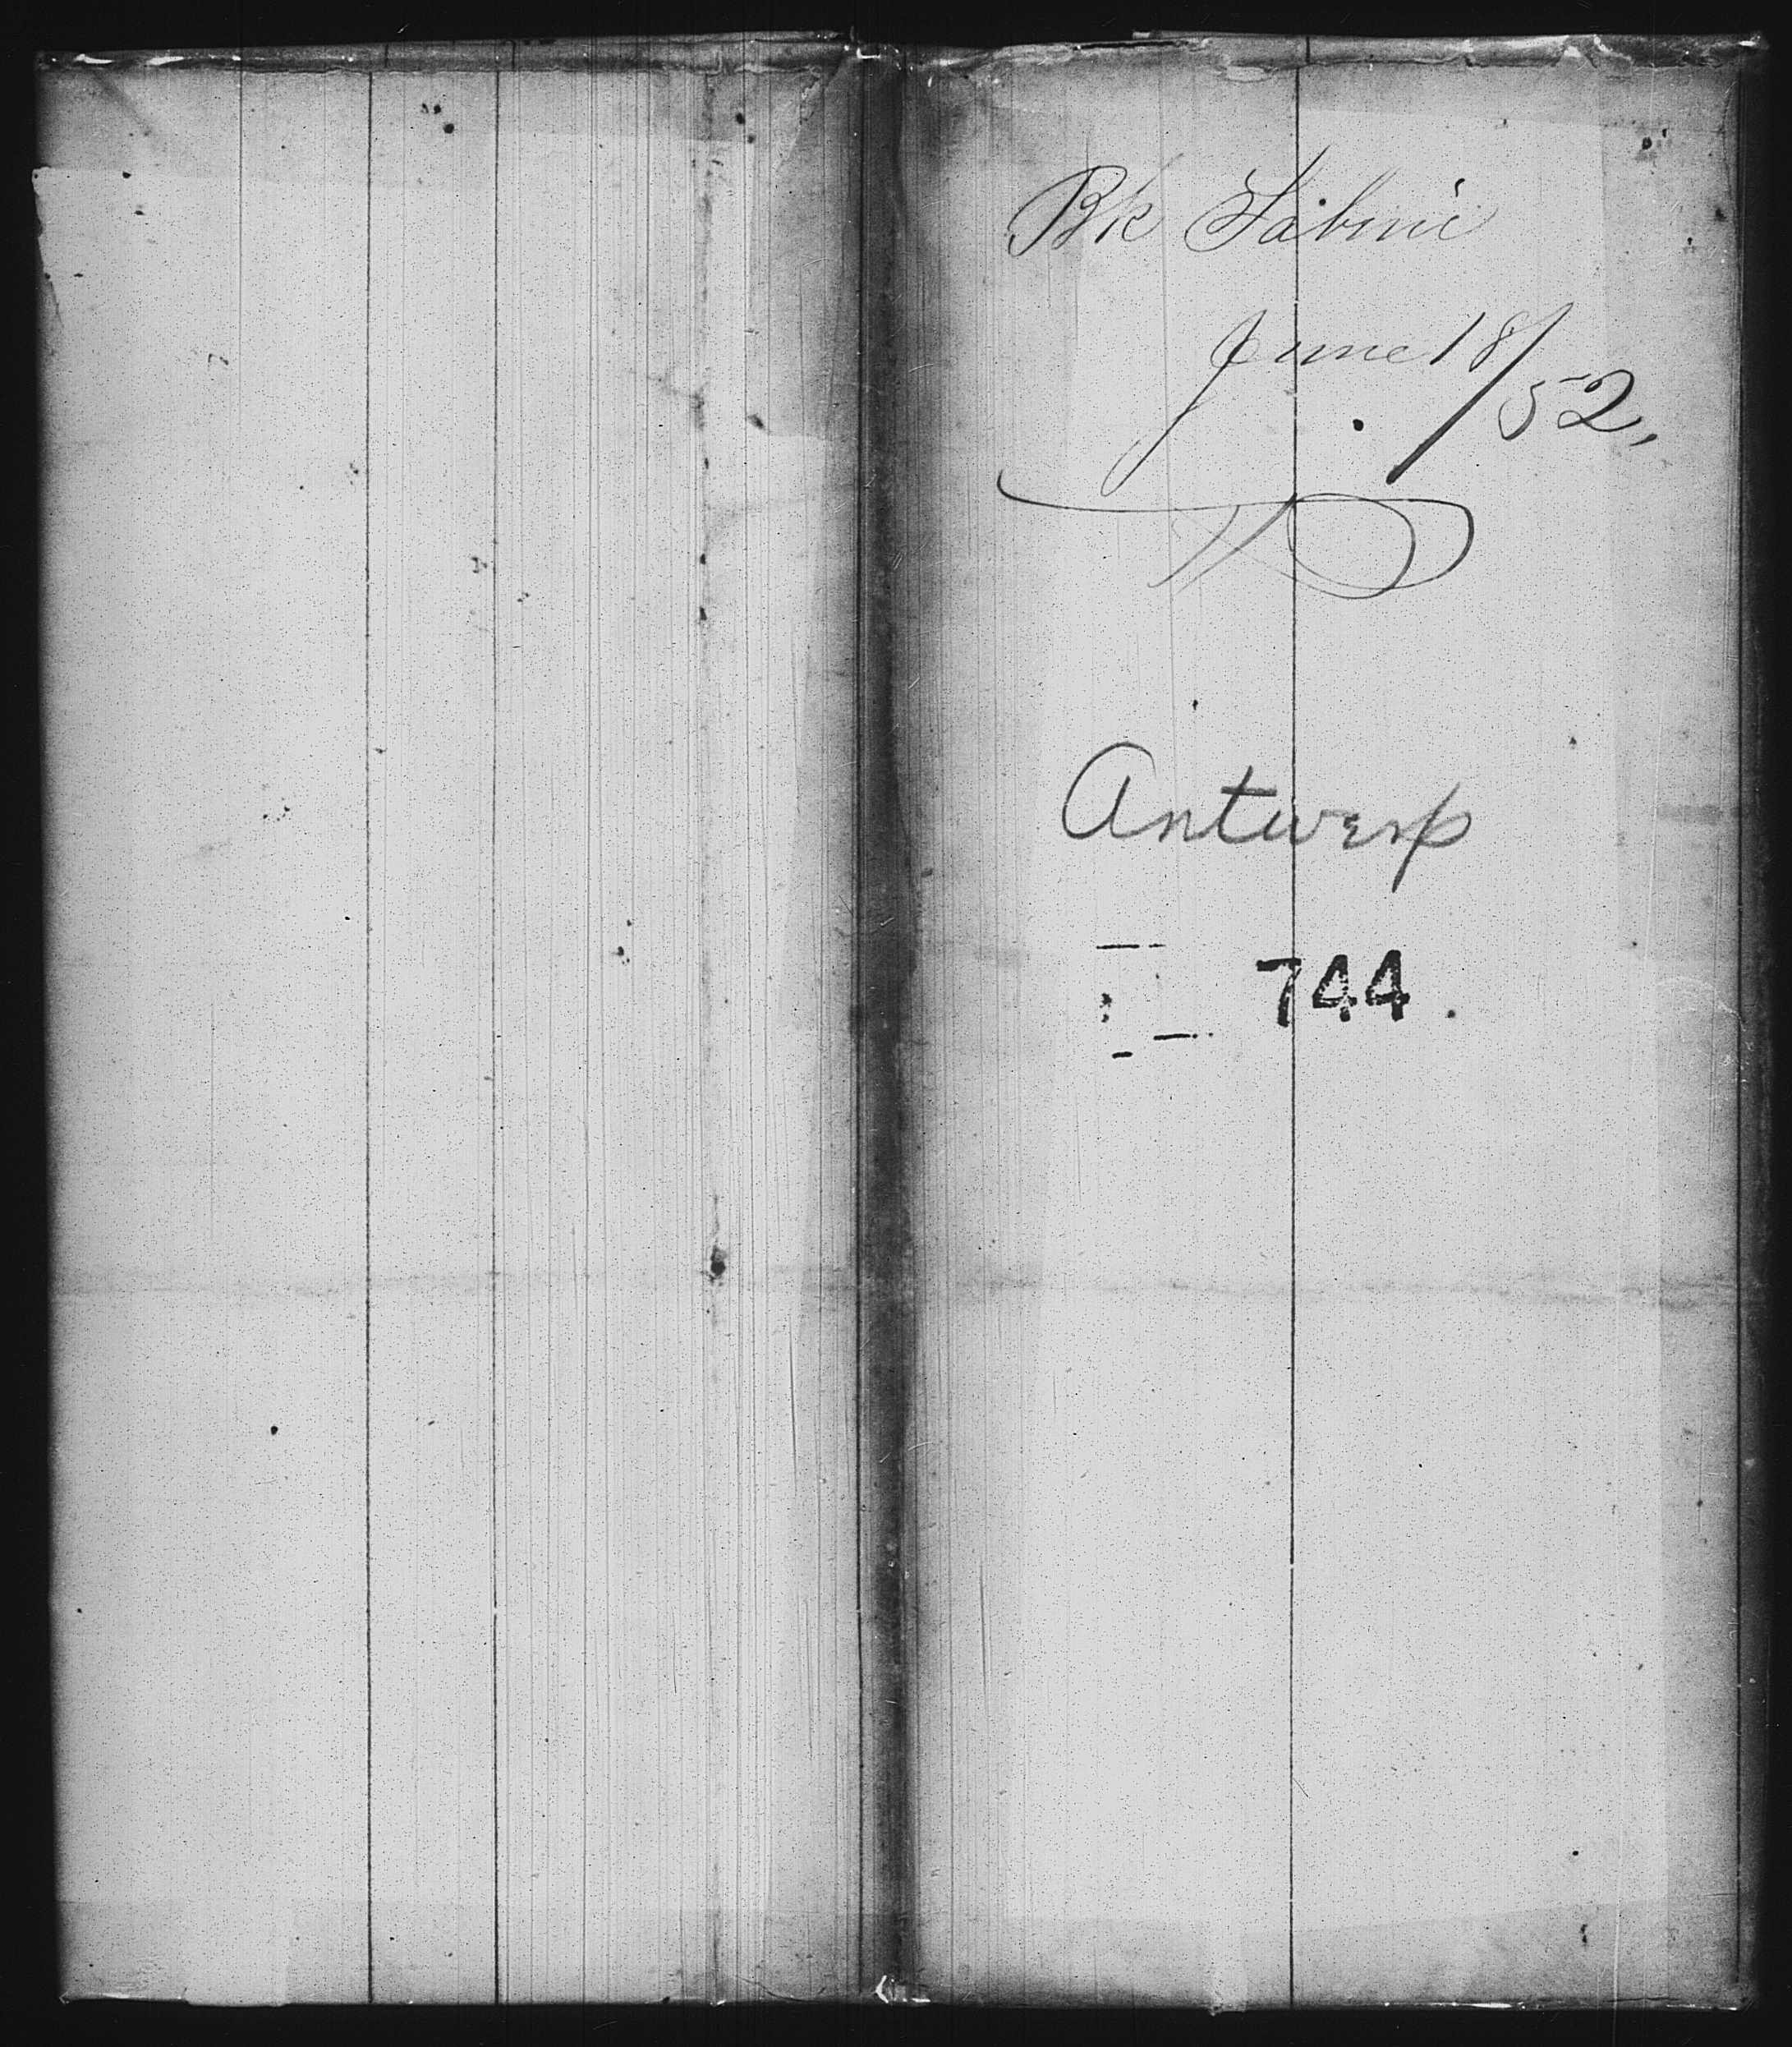 Bk Sabine
June 18/52.
Antwerp
744